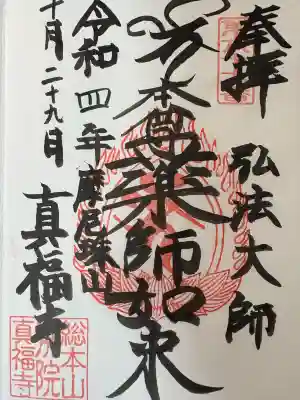 奉拝 弘法大師
本尊薬師如来
令和四年 摩尼珠山
十月二十九日 真福寺
総本山
別院
真福寺